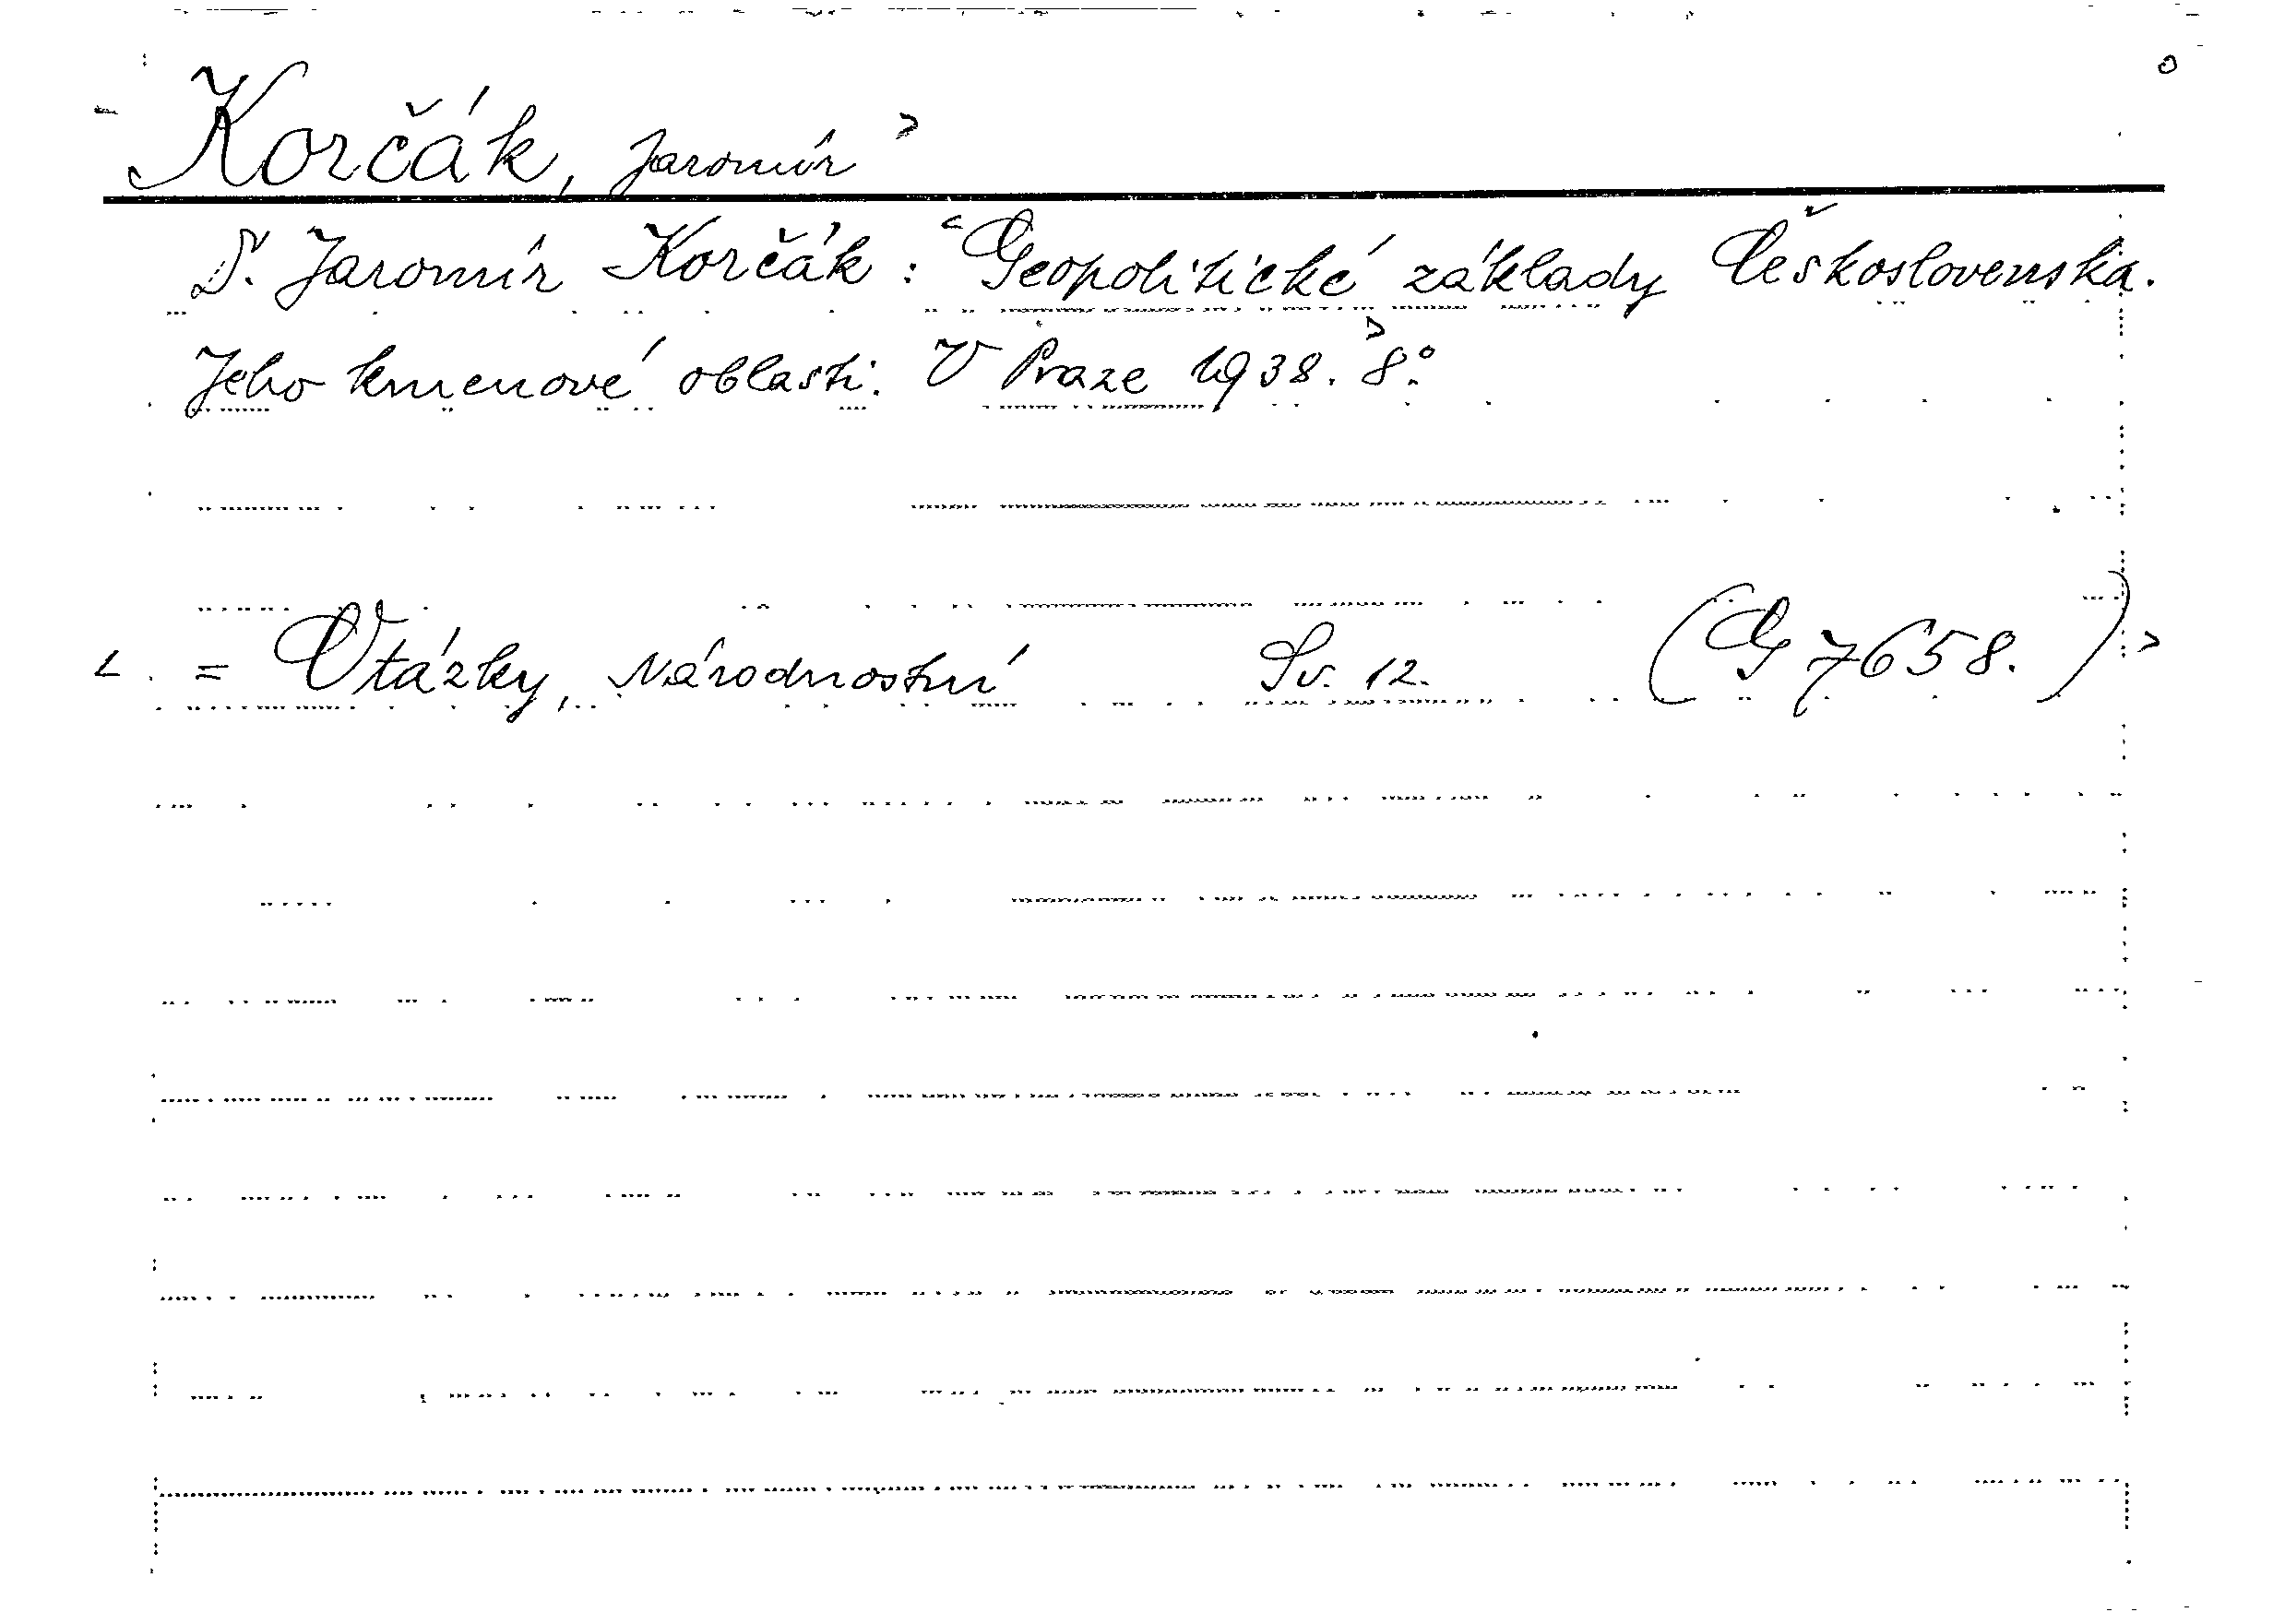 Korčák, Jaromír
D. Jaromír Korčák: Geopolitické základy Československa.
Jeho kmenové oblasti. V Praze 1938. 8°.
= Otázky, Národnostní Sv. 12. (G 7658.)